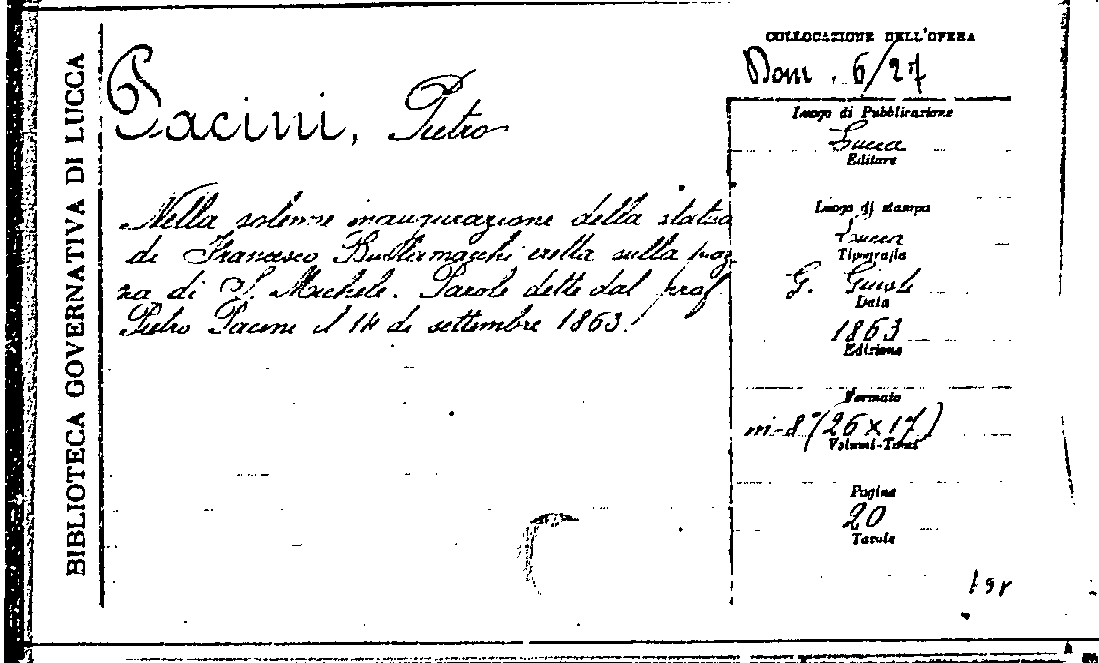 BIBLIOTECA GOVERNATIVA DI LUCCA
Pacini, Pietro
Nella solenne inaugurazione della statua
di Francesco Burlamacchi eretta sulla piaz
za di S. Michele. Parole dette dal prof.
Pietro Pacini il 14 di settembre 1863.
COLLOCAZIONE DELL'OPERA
Dom. 6/27
Luogo di Pubblicazione
Lucca
Editore
Luogo di stampa
Lucca
Tipografia
G.
Data
1863
Edizione
Formato
in-8° (26 x 17)
Volumi-Tomi
Pagine
20
Tavole